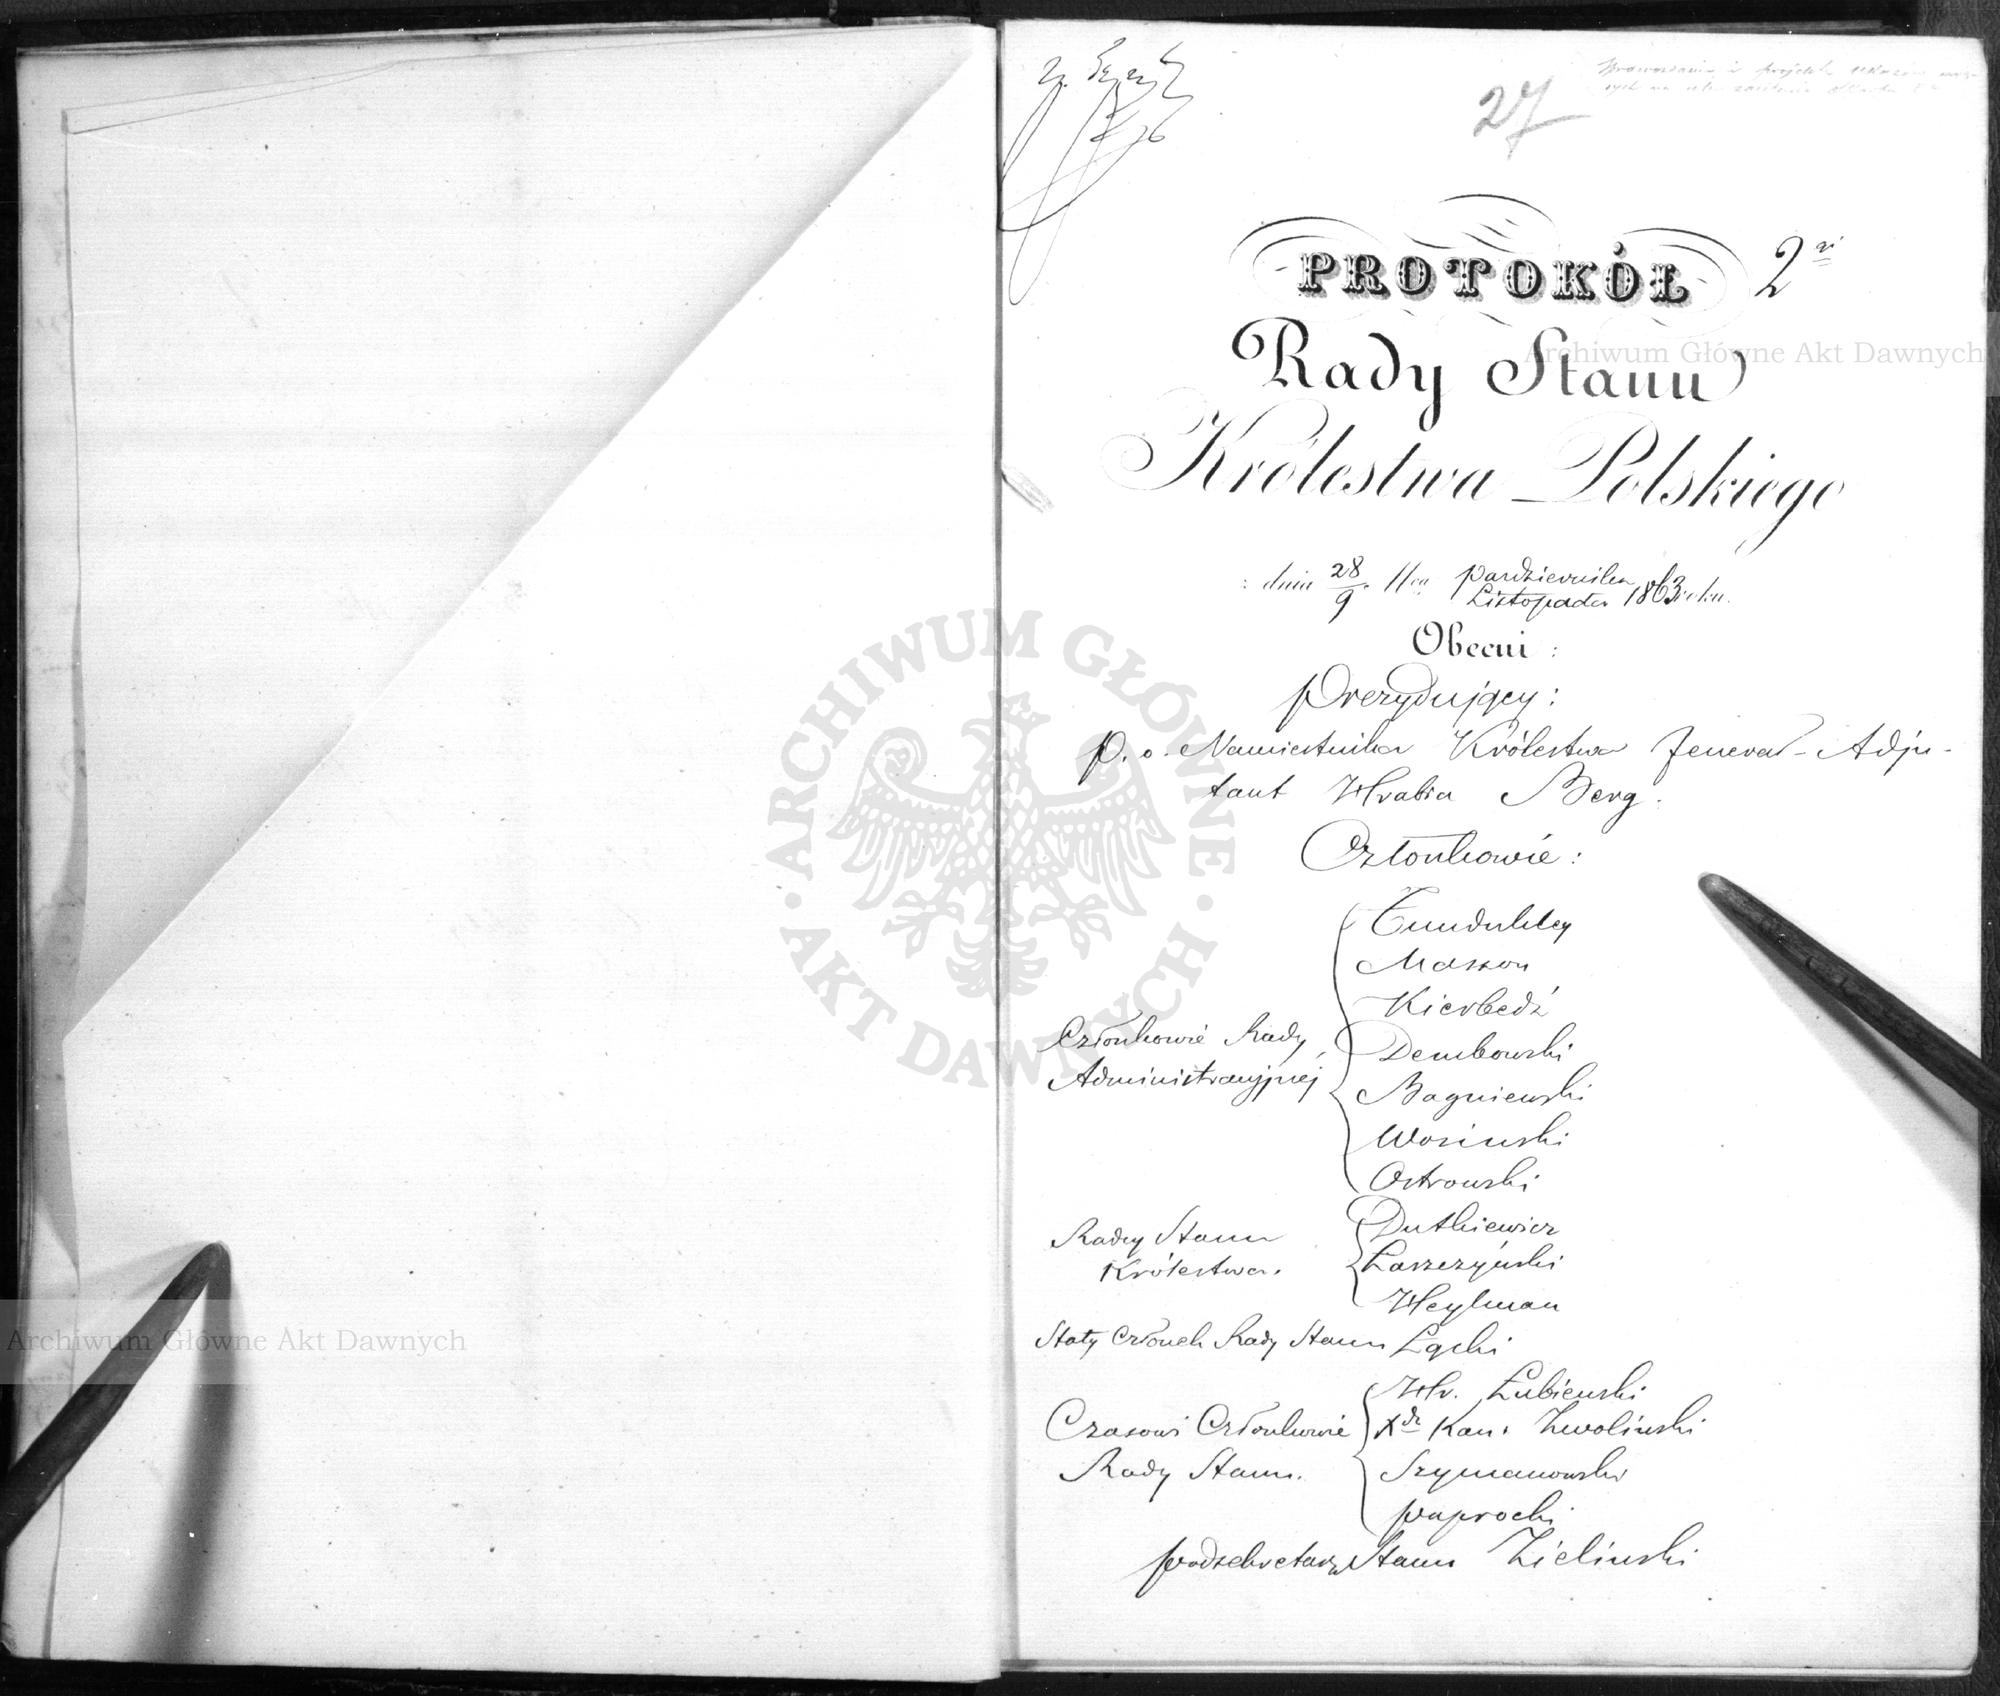 27
PROTOKÓŁ 2gi
Rady Stanu
Królestwa Polskiego
z dnia 28/9 11ca Pazdziernika/Listopada 1863 roku.
Obecni:
Prezydujący:
P. o. Namiestnika Królestwa Jenerał-Adju-
tant Hrabia Berg.
Członkowie:
Członkowie Rady
Administracyjnej
Tundukley
Masson
Kierbedź
Dembowski
Bagniewski
Wosinski
Ostrowski
Radcy Stanu
Królestwa.
Dutkiewicz
Łaszczyński
Heylman
Stały Członek Rady Stanu Łącki
Czasowi Członkowie
Rady Stanu.
Hr. Łubieński
Xdz Kan. Zwoliński
Szymanowski
Paprocki
Podsekretarz Stanu Zieliński
ARCHIWUM GŁÓWNE AKT DAWNYCH
Archiwum Główne Akt Dawnych
Archiwum Główne Akt Dawnych